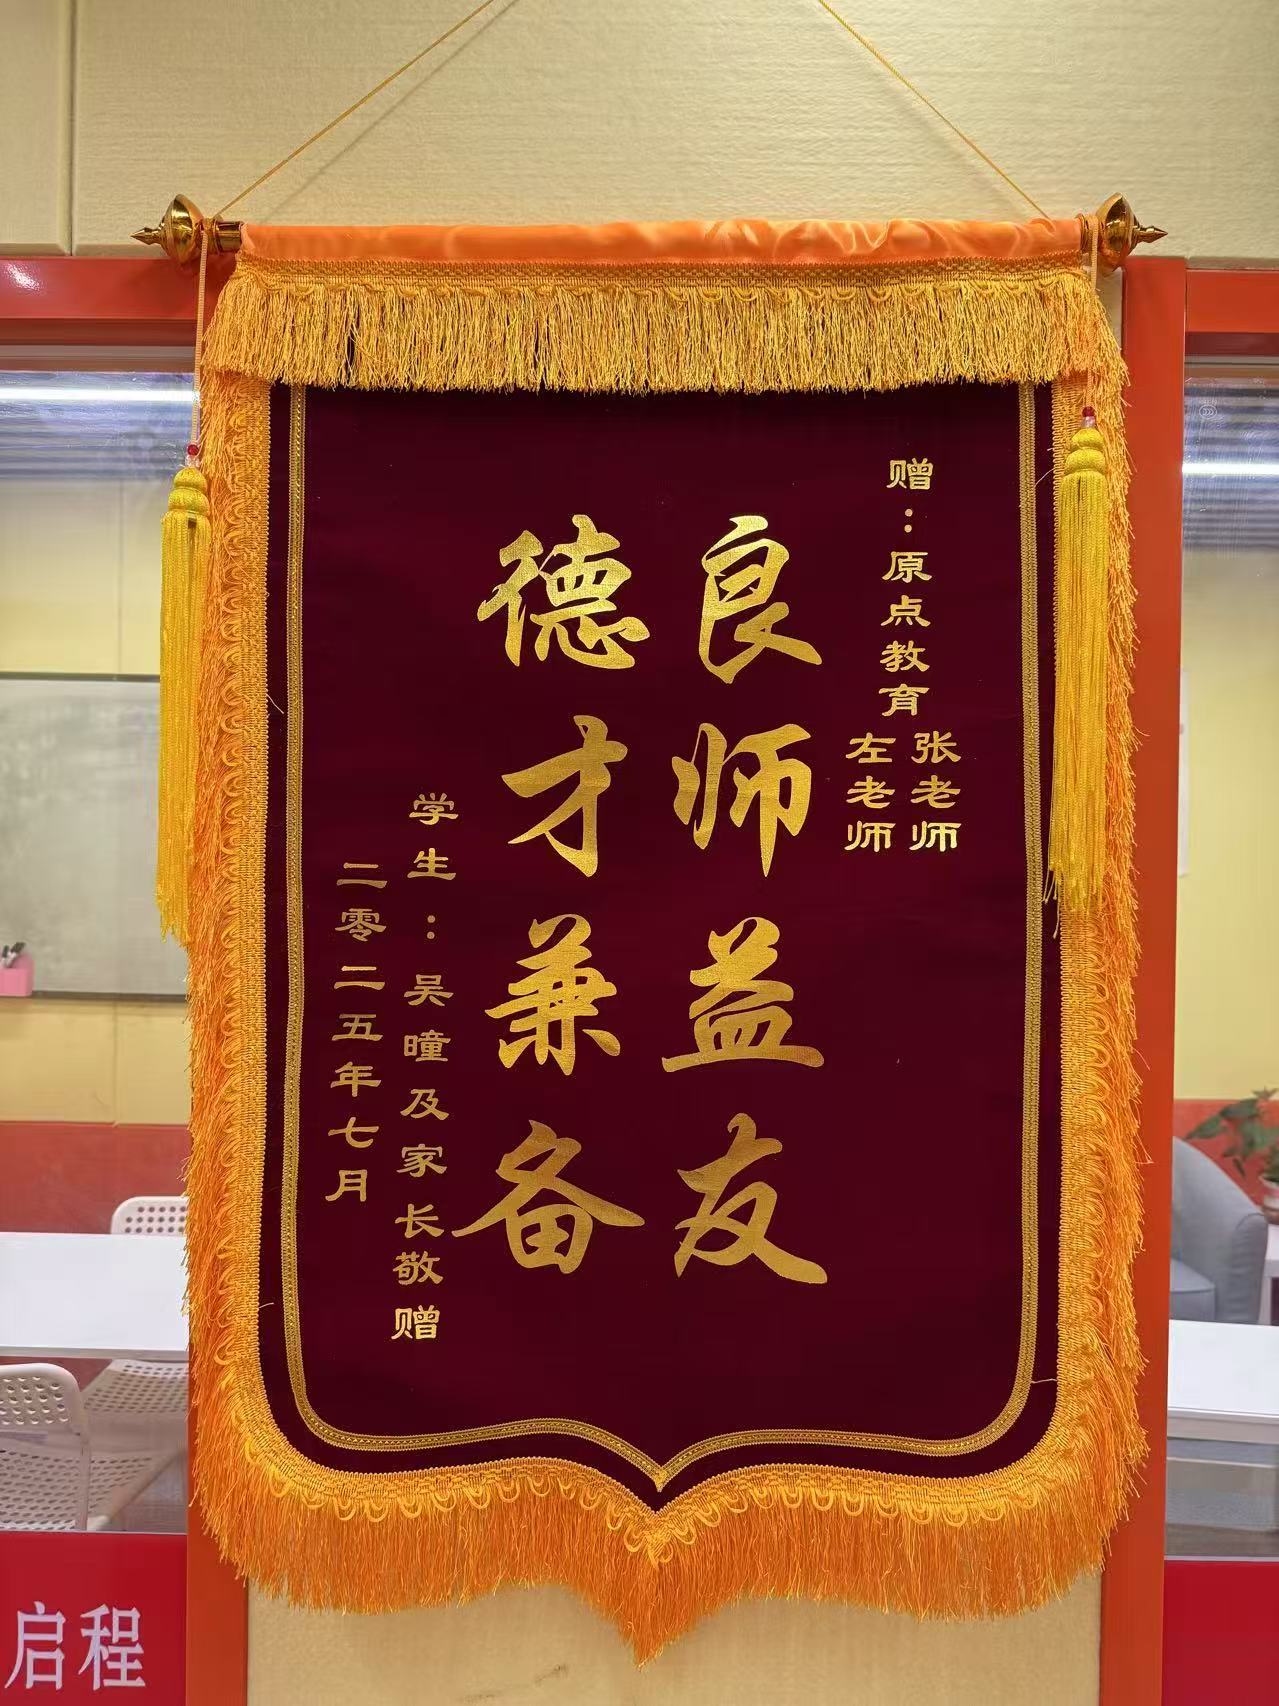 赠：原点教育
张老师
左老师
良师益友
德才兼备
学生：吴曈及家长敬赠
二零二五年七月
启程